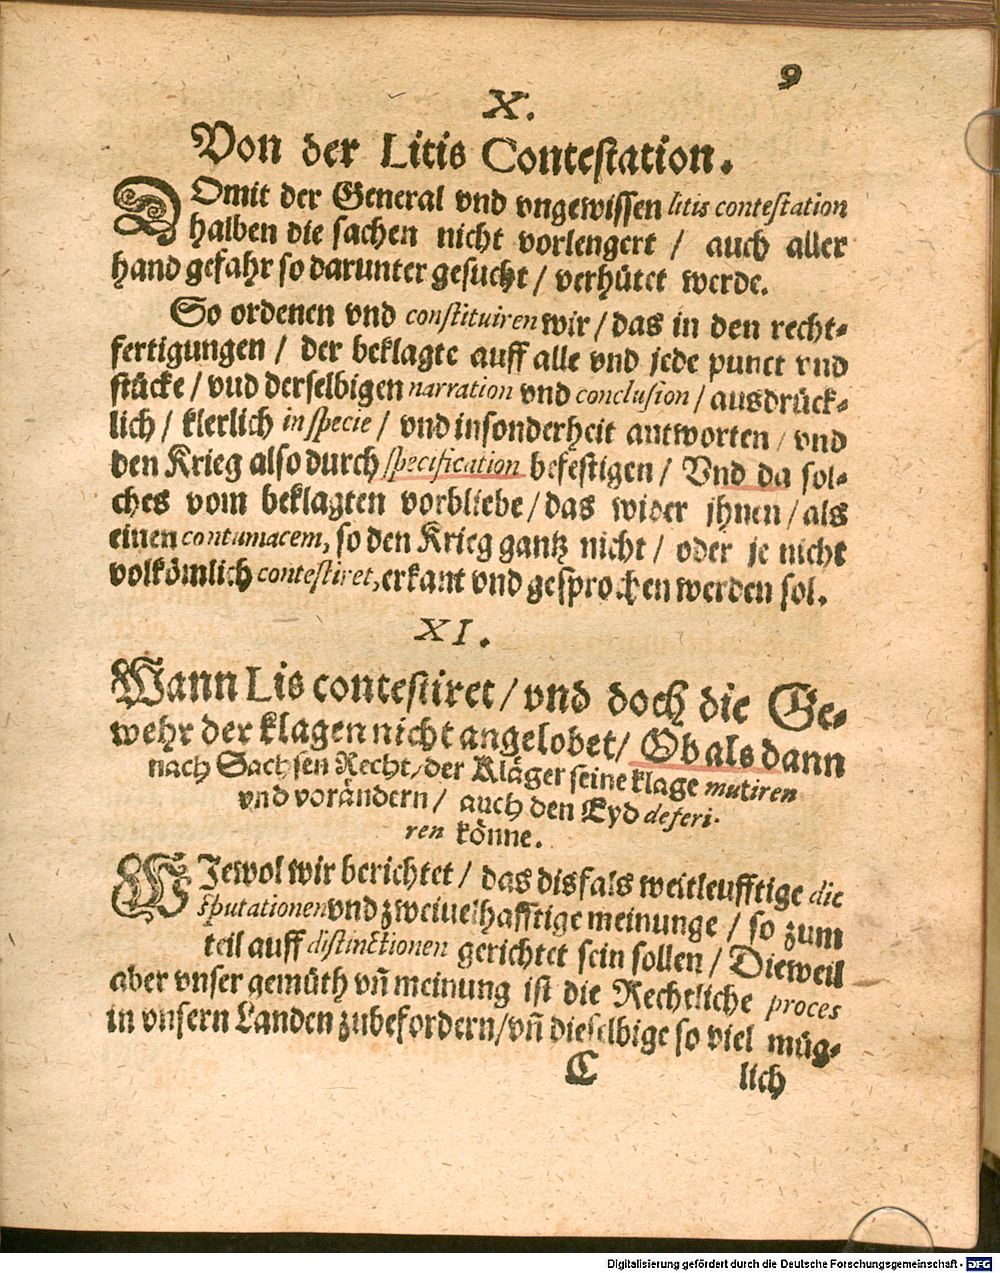 9
X.
Von der Litis Contestation.
DOmit der General vnd vngewissen litis contestation
halben die sachen nicht vorlengert / auch aller
hand gefahr so darunter gesucht / verhütet werde.
So ordenen vnd constituiren wir / das in den recht-
fertigungen / der beklagte auff alle vnd jede punct vnd
stücke / vnd derselbigen narration vnd conclusion / ausdrück-
lich / klerlich in specie / vnd insonderheit antworten / vnd
den Krieg also durch specification befestigen / Vnd da sol-
ches vom beklagten vorbliebe / das wider jhnen / als
einen contumacem, so den Krieg gantz nicht / oder je nicht
volkömlich contestiret, erkant vnd gesprochen werden sol.
XI.
Wann Lis contestiret / vnd doch die Ge-
wehr der klagen nicht angelobet / Ob als dann
nach Sachsen Recht / der Kläger seine klage mutiren
vnd vorändern / auch den Eyd deferi-
ren könne.
WJewol wir berichtet / das disfals weitleufftige die
sputationen vnd zweiuelhafftige meinunge / so zum
teil auff distinctionen gerichtet sein sollen / Dieweil
aber vnser gemüth vñ meinung ist die Rechtliche proces
in vnsern Landen zubefordern / vñ dieselbige so viel müg-
C lich
Digitalisierung gefördert durch die Deutsche Forschungsgemeinschaft - DFG